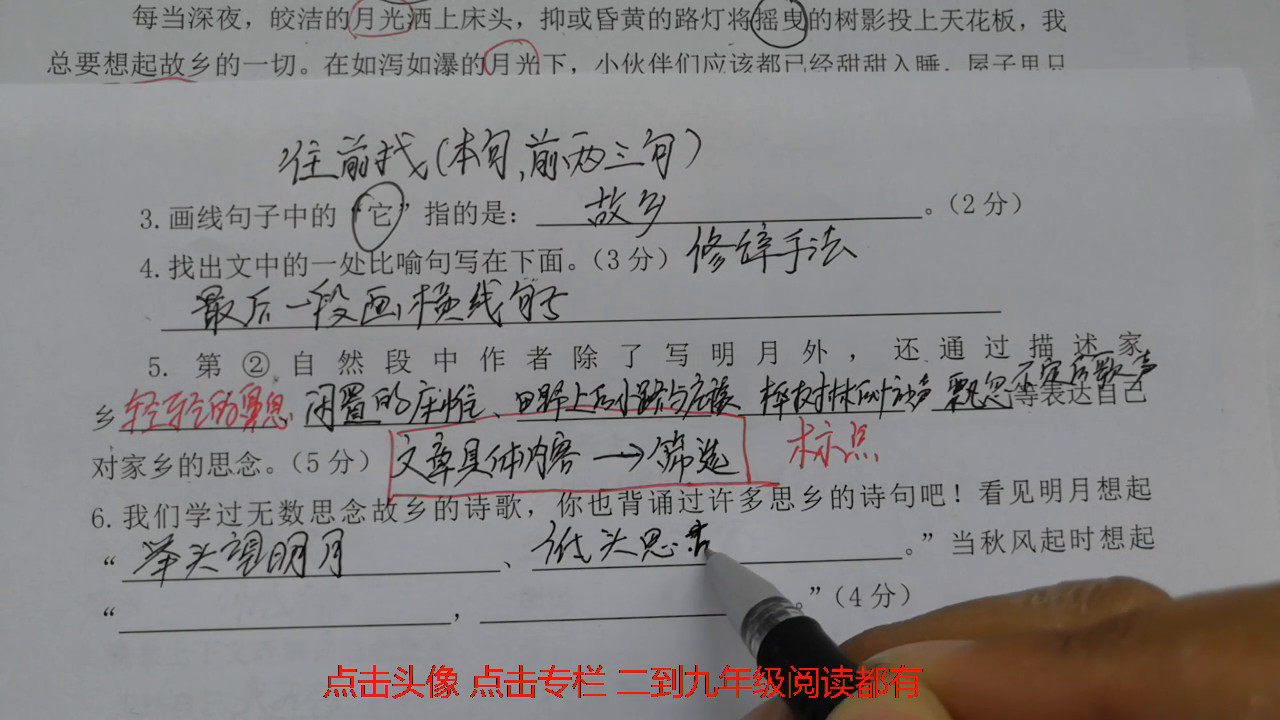 每当深夜，皎洁的月光洒上床头，抑或昏黄的路灯将摇曳的树影投上天花板，我
总要想起故乡的一切。在如泻如瀑的月光下，小伙伴们应该都已经甜甜入睡，屋子里只
往前找（本句，前两三句）
3.画线句子中的“它”指的是：故乡。（2分）
4.找出文中的一处比喻句写在下面。（3分）修辞手法
最后一段画横线句子
5. 第②自然段中作者除了写明月外，还通过描述家
乡轻轻的鼻息、闲置的床帷、田野上的小路与房 桦树林的 声 飘忽不定的歌声等表达自己
对家乡的思念。（5分）文章具体内容→筛选 标点
6.我们学过无数思念故乡的诗歌，你也背诵过许多思乡的诗句吧！看见明月想起
“举头望明月、低头思。”当秋风起时想起
“，。”（4分）
点击头像 点击专栏 二到九年级阅读都有